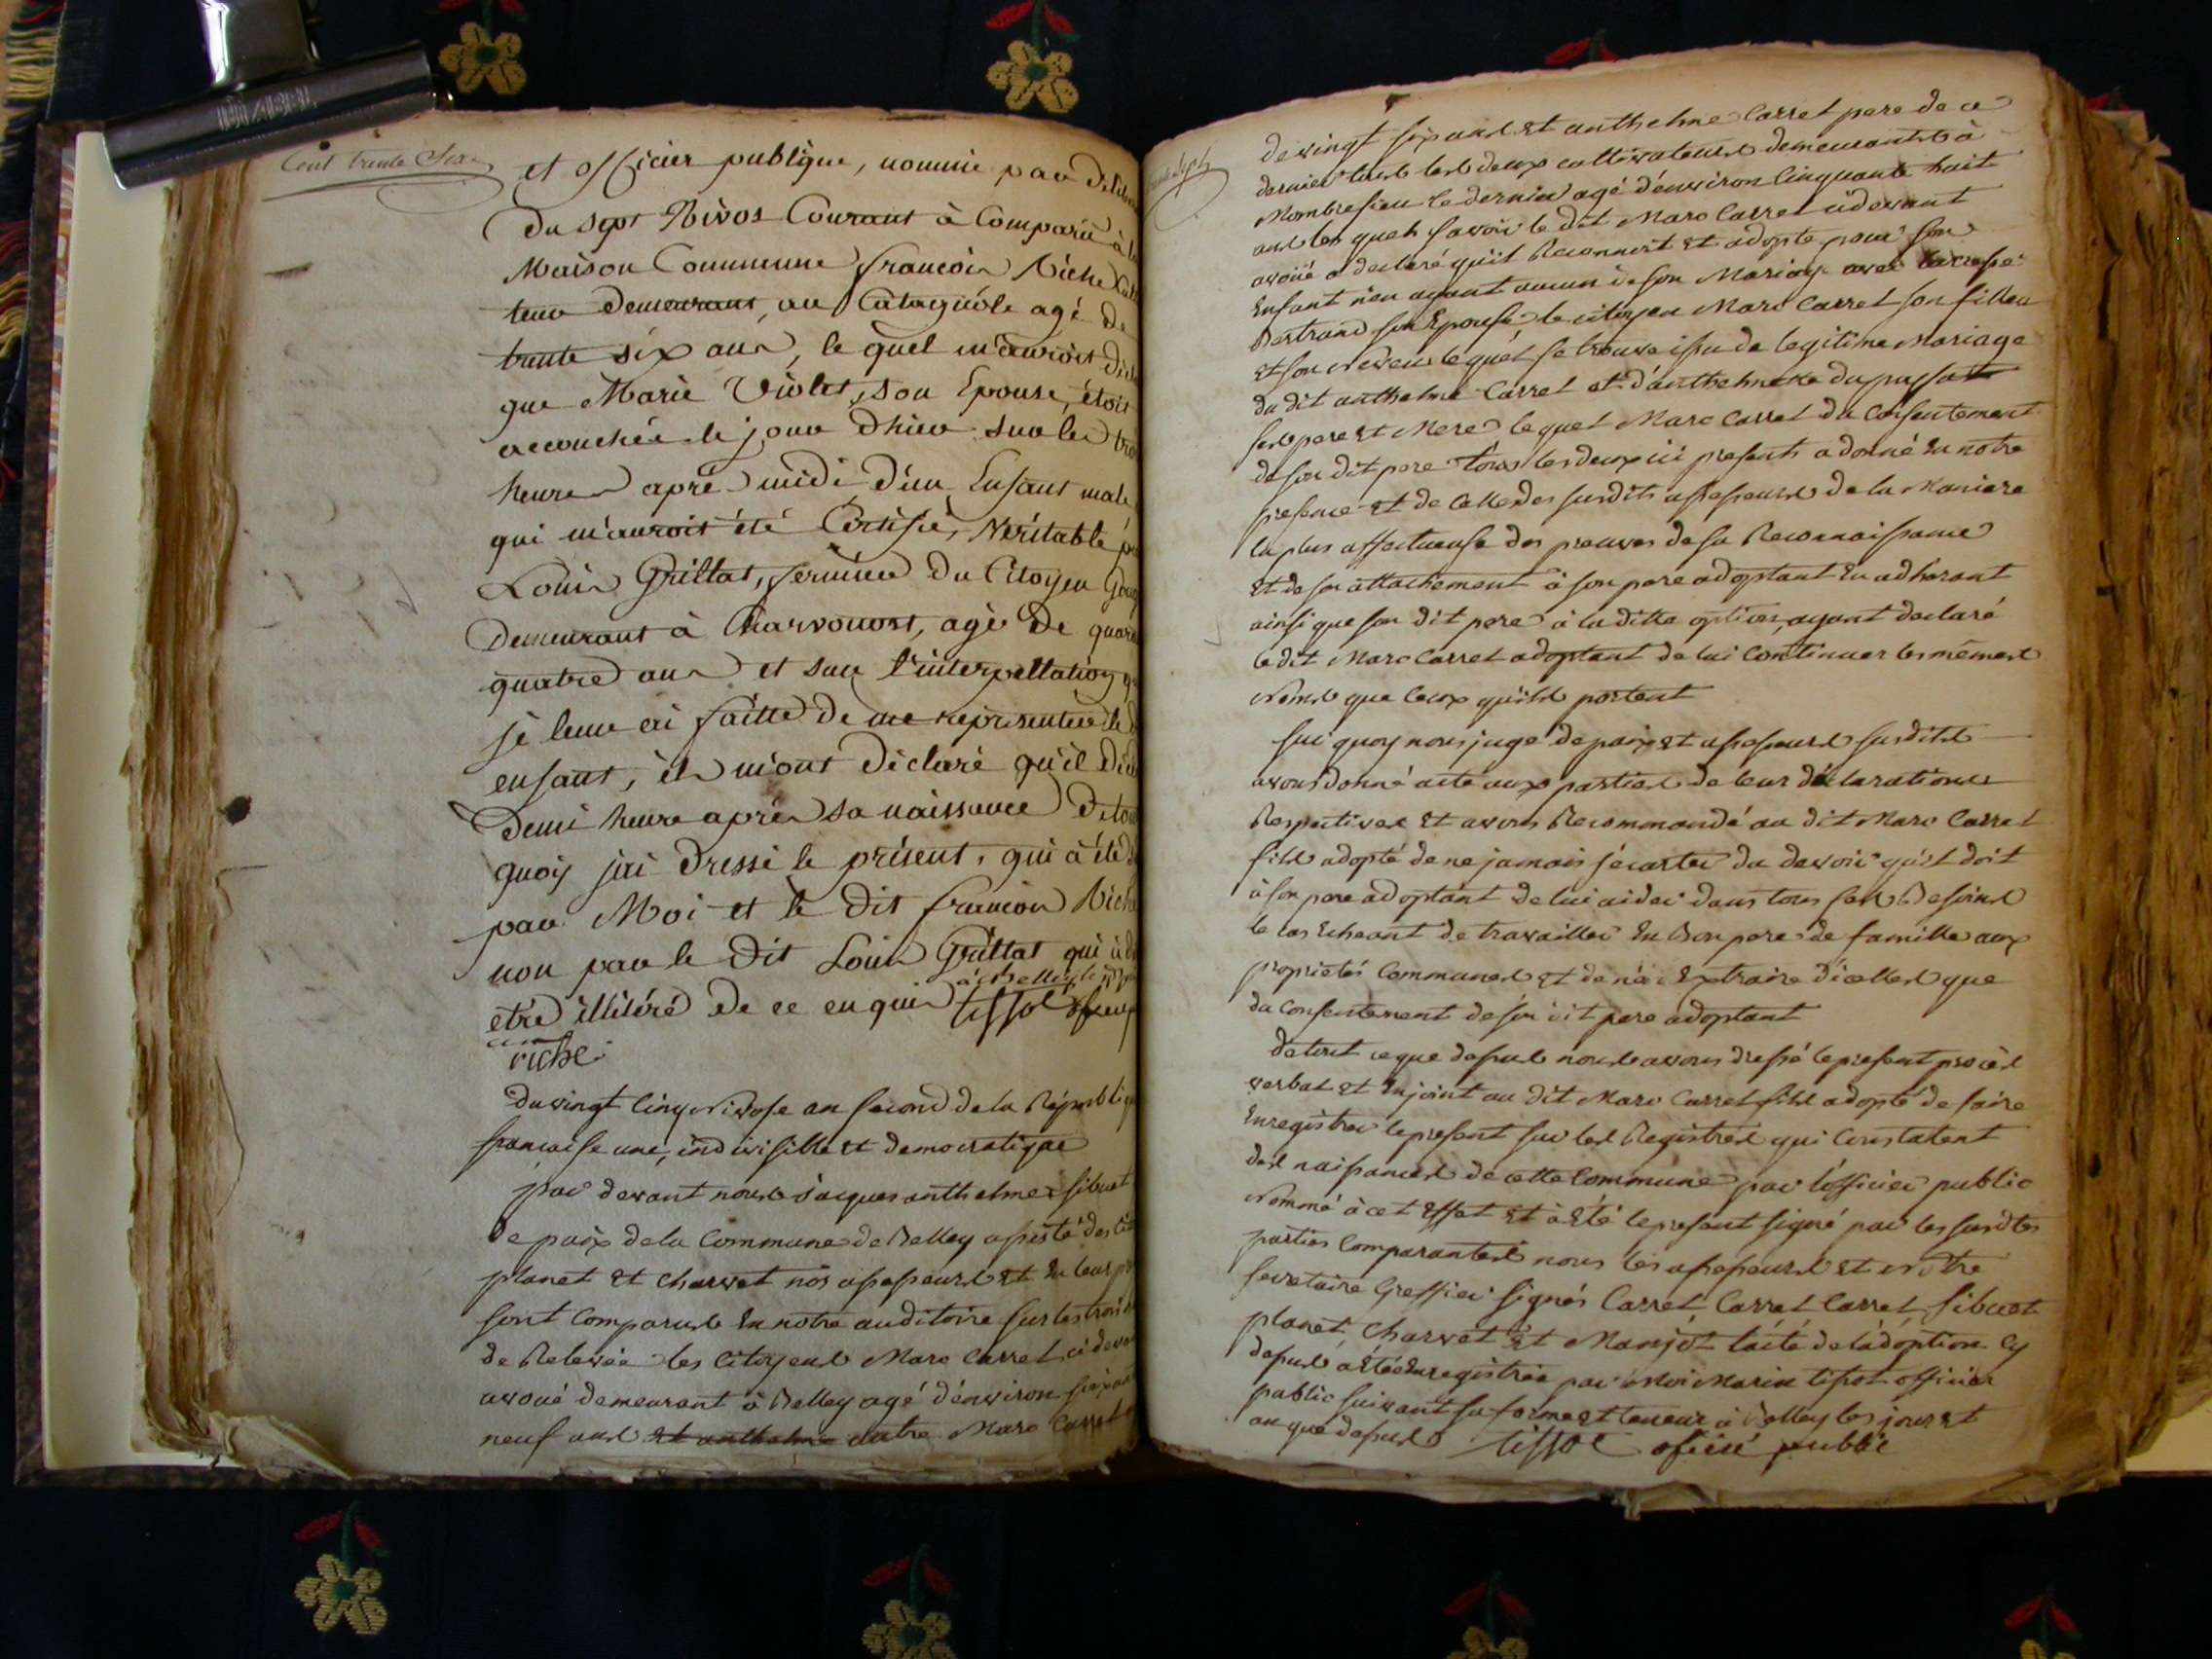 Cent trente Six
et officier publique, nommé par
du sept Nivos Courant à Comparù à
Maison Commune francois Riche
teur demeurant, au Catagnôle agé de
trente six ans, le quel m'auroit
que Marie Violet, son Epouse, étoit
accouchée le jour d'hier sur les
heures aprés midi d'un Enfant male
qui m'auroit été Certifié, Véritable
Louis Grillat, fermier du Citoyen
Demeurant à Charvonost, agé de
quatre ans et sur l'interpellation
je leur ai faitte de me représenter le
enfant, ils m'ont déclaré qu'il
Demi heure aprés sa naissance De tout
quoy jai dressé le présent, qui à été
par Moi et le dit francois Riche
non par le dit Louis Grillat qui à
etre illitéré de ce enquis tissot
riche
Du vingt Cinq Nivose an second de la Républi
francaise une, indivisible et democratique
par devant nous jacques anthelme sibuet
De paix de la Commune de Belley assisté des
planet et Charvet nos assesseurs et En leur
sont Comparus En notre auditoire sur les trois
de Relevée les Citoyens Marc Carret
avoué demeurant à Belley agé d'environ
neuf ans et anthelme autre Marc Carret
de vingt six ans et anthelme Carret pere de ce
dernier tous les deux cultivateurs demeurants à
Mombresieu le dernier agé d'environ Cinquante huit
ans les quels savoir le dit Marc Carret cidevant
avoué a declaré qu'il Reconnoit et adopte pour son
Enfant n'en ayant aucun de son Mariage avec
Bertrand son Epouse le citoyen Marc Carret son filleu
et son neveu lequel se trouve issu de legitime Mariage
du dit anthelme Carret et d'anthelmette
ses pere et Mere lequel Marc Carret du Consentement
de son dit pere tous les deux ici presents a donné En notre
presence et de Celle des susdits assesseurs de la Maniere
la plus affectueuse des preuves de sa Reconnaissance
et de son attachement à son pere adoptant En adherant
ainsi que son dit pere à la ditte option, ayant declaré
le dit Marc Carret adoptant de lui Continuer les mêmes
Noms que Ceux qu'ils portent
sur quoy nous juge de paix et assesseurs susdits
avons donné acte aux parties de leur déclarations
Respectives et avons Recommandé au dit Marc Carret
fils adopté de ne jamais s'écarter du devoir qu'il doit
à son pere adoptant de lui aider dans tous ses Besoins
le cas Echeant de travailler En Bon pere de famille aux
proprietés Communes et de n'en Extraire d'icelles que
du Consentement de son dit pere adoptant
detout ce que dessus nous avons dressé le present procès
verbal et Enjoint au dit Marc Carret fils adopté de faire
Enregistrer le present sur les Registres qui Constatent
des naissances de cette Commune par l'officier public
Nommé à cet Effet et à Eté le present signé par les susdtes
parties Comparantes nous les assesseurs et Notre
secretaire Greffier signés Carret, Carret, Carret, sibuet
planet, Charvet et Manjot l'acte de l'adoption Cy
dessus à Eté Enregistrée par Moi Marin tissot officier
public suivant sa forme et teneur à Belley les jour et
an que dessus tissot oficié public